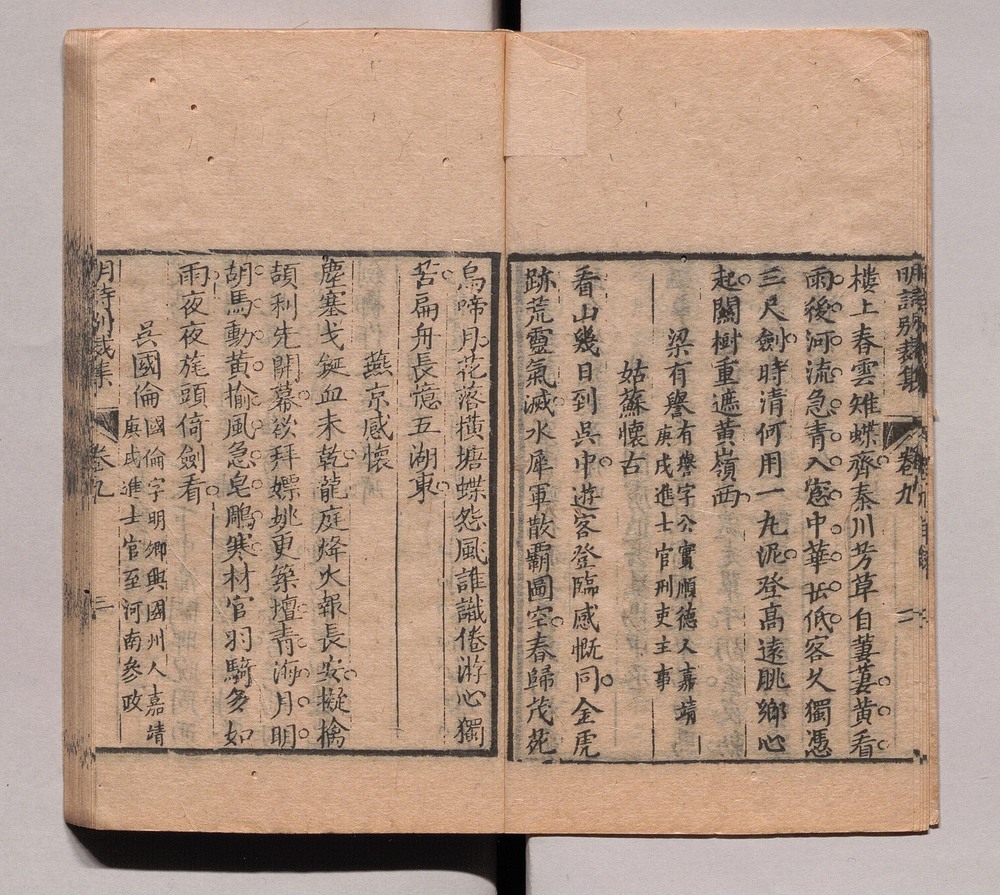 明詩別裁集 卷九 二
樓上春雲雉蝶齊秦川芳草自萋萋黃看
雨後河流急青入窓中華岳低客久獨憑
三尺劍時清何用一九泥登高遠眺鄉心
起關樹重遮黃嶺西
梁有譽 有譽字公實順德人嘉靖
庚戌進士官刑吏主事
姑蘇懷古
看山幾日到吳中遊客登臨感慨同金虎
跡荒靈氣滅水犀軍散霸圖空春歸茂苑
烏啼月花落橫塘蝶怨風誰識倦游心獨
苦扁舟長憶五湖東
燕京感懷
塵塞戈鋋血未乾龍庭烽火報長安擬擒
頡利先開幕欲拜嫖姚更築壇青海月明
胡馬動黃榆風急皂鵰寒材官羽騎多如
雨夜夜旄頭倚劍看
吳國倫 國倫字明卿興國州人嘉靖
庚戌進士官至河南參政
明詩別裁集 卷九 三